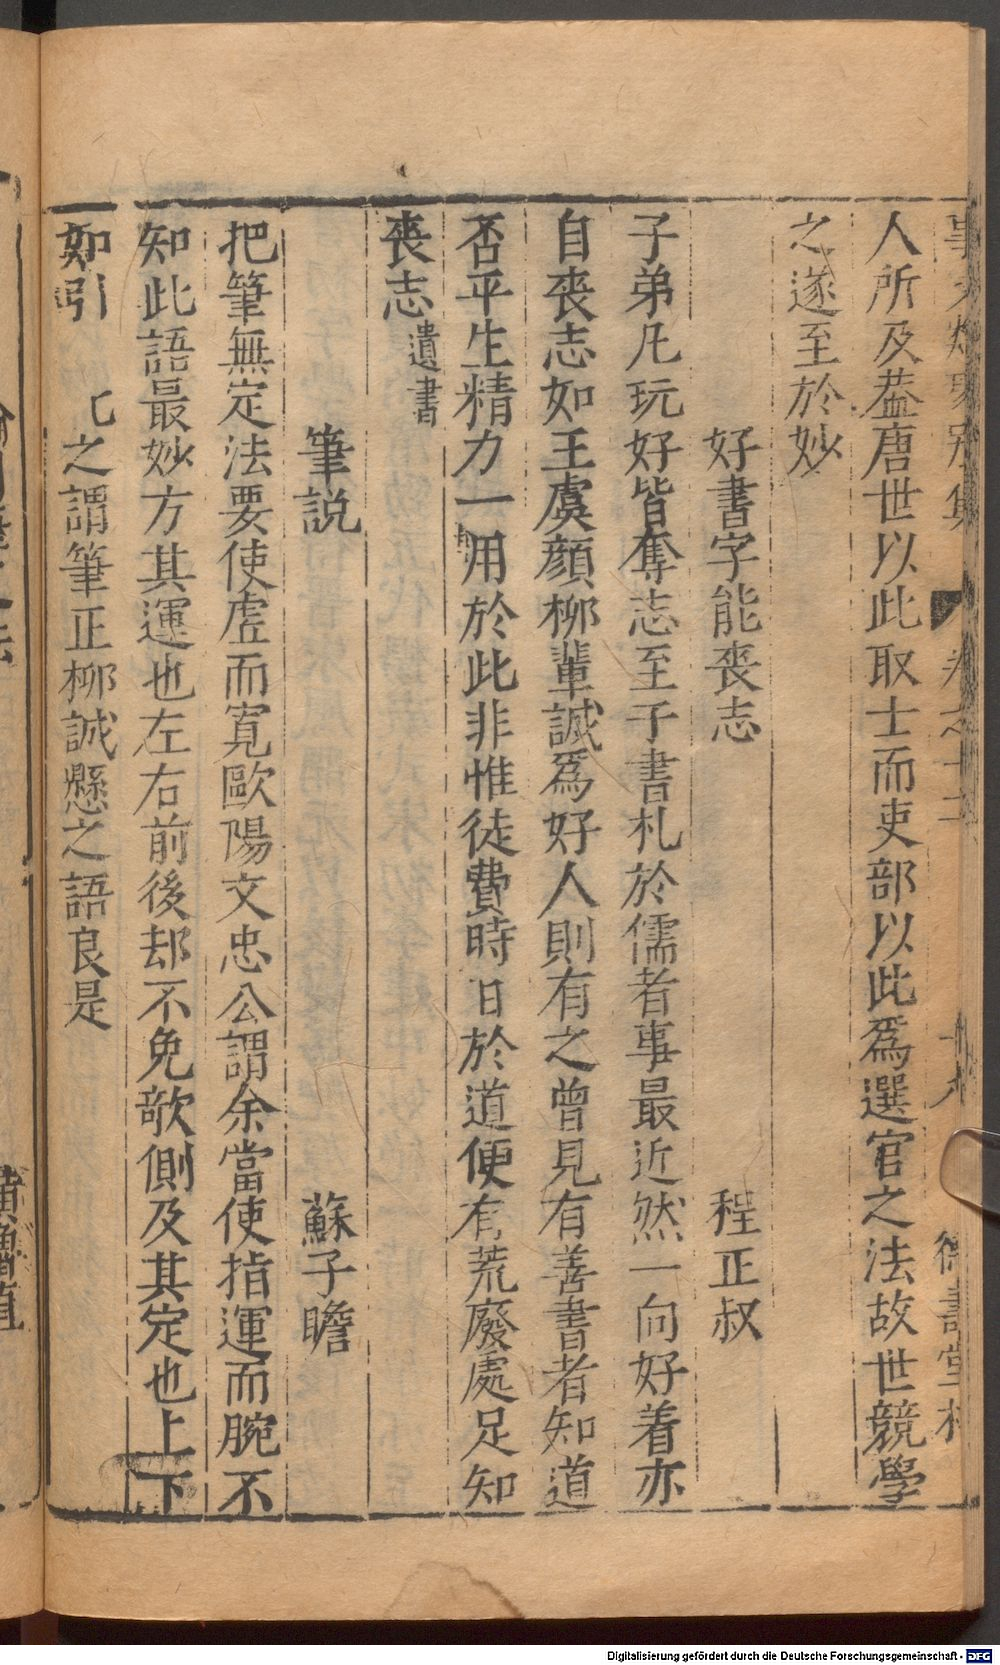 人所及葢唐世以此取士而吏部以此爲選官之法故世競學
之遂至於妙
好書字能喪志 程正叔
子弟凡玩好皆奪志至于書札於儒者事最近然一向好着亦
自喪志如王虞顔柳輩誠爲好人則有之曾見有善書者知道
否平生精力一用於此非惟徒費時日於道便有荒廢處足知
喪志遺書
筆説 蘇子瞻
把筆無定法要使虛而寬歐陽文忠公謂余當使指運而腕不
知此語最妙方其運也左右前後却不免欹側及其定也上下
如引 之謂筆正柳誠懸之語良是
Digitalisierung gefördert durch die Deutsche Forschungsgemeinschaft - DFG